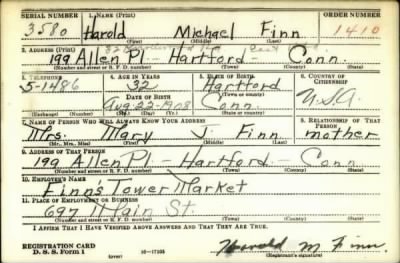 SERIAL NUMBER 1. NAME (Print) ORDER NUMBER
3580 Harold Michael Finn 1410
(First) (Middle) (Last)
2. ADDRESS (Print)
199 Allen Pl - Hartford - Conn.
(Number and street or R. F. D. number) (Town) (County) (State)
3. TELEPHONE 4. AGE IN YEARS 5. PLACE OF BIRTH 6. COUNTRY OF CITIZENSHIP
5-1486 32 Hartford
DATE OF BIRTH (Town or county)
Aug. 22-1908 Conn. U.S.A.
(Exchange) (Number) (Mo.) (Day) (Yr.) (State or country)
7. NAME OF PERSON WHO WILL ALWAYS KNOW YOUR ADDRESS 8. RELATIONSHIP OF THAT PERSON
Mrs. Mary J. Finn mother
(Mr., Mrs., Miss) (First) (Middle) (Last)
9. ADDRESS OF THAT PERSON
199 Allen Pl - Hartford - Conn
(Number and street or R. F. D. number) (Town) (County) (State)
10. EMPLOYER'S NAME
Finn's Tower Market
11. PLACE OF EMPLOYMENT OR BUSINESS
697 Main St.
(Number and street or R. F. D. number) (Town) (County) (State)
I AFFIRM THAT I HAVE VERIFIED ABOVE ANSWERS AND THAT THEY ARE TRUE.
REGISTRATION CARD
D. S. S. Form 1 (over) Harold M. Finn
(Registrant's signature)